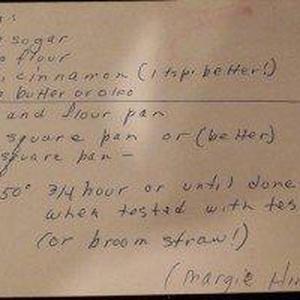 sogar
flour
cinnamon (1 tsp. better!)
butter or oleo
and flour pan
square pan or (better)
square pan —
50° 3/4 hour or until done
when tested with tes
(or broom straw!)
(Margie